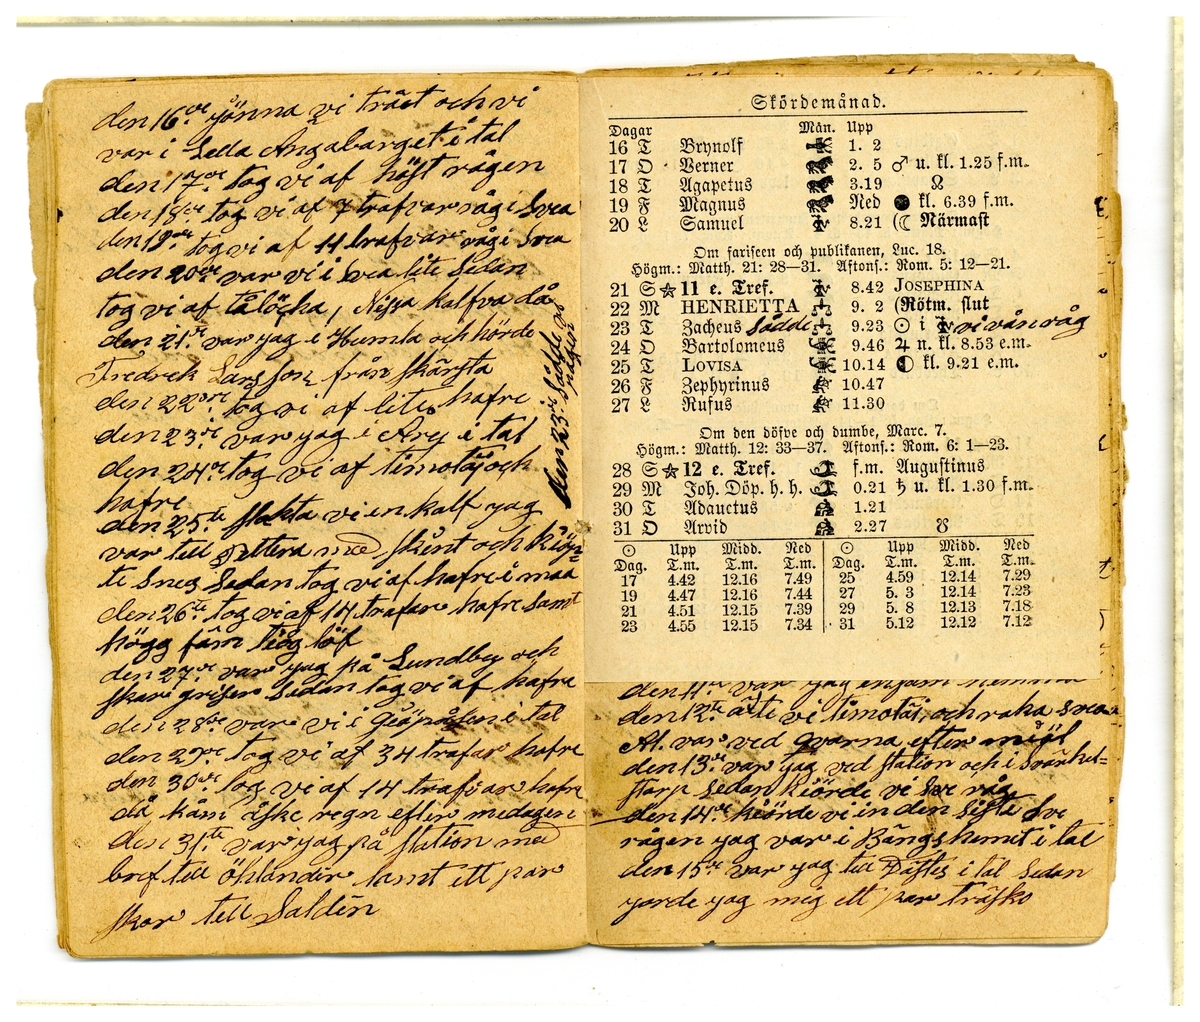 den 16de yönna vi träst och vi
var i Lella Angabarget i tal
den 17de tog vi af höst rågen
den 18de tog vi af 7 trafvar råg i Svea
den 19de tog vi af 14 trafvar råg i Svea
den 20de var vi i Svea lite Sedan
tog vi af tålöcka, Nissa kalfva då
den 21de var yag i Humla och hörde
Fredrek Larsson från skärsta
den 22dre tog vi af lite hafre
den 23de var yag i Arej i tal
den 24de tog vi af timotäj och
hafre
den 25te slakta vi en kalf yag
var till Pettera med skent och kiöp
te Sneg Sedan tog vi af hafre i maa
den 26te tog vi af 14 trafvar hafre samt
högg fäm tiog löf
den 27de var yag på Lundbey och
skar grisen Sedan tog vi af hafre
den 28de var vi i i tal
den 29de tog vi af 34 trafvar hafre
den 30de tog vi af 14 trafvar hafre
då kam åske regn efter medagen
den 31te var yag på station med
bref till Öhlander samt ett par
skor till Saldén
den 23de Sådde vi rågen
Skördemånad.
Dagar Mån. Upp
16 T Brynolf 1. 2
17 O Verner 2. 5 ♂ u. kl. 1.25 f.m.
18 T Agapetus 3.19 ☊
19 F Magnus Ned ● kl. 6.39 f.m.
20 L Samuel 8.21 (☾ Närmast
Om fariseen och publikanen, Luc. 18.
Högm.: Matth. 21: 28—31. Aftons.: Rom. 5: 12—21.
21 S ☆ 11 e. Tref. 8.42 JOSEPHINA
22 M HENRIETTA 9. 2 (Rötm. slut
23 T Zacheus Sådde 9.23 ☉ i vi vån råg
24 O Bartolomeus 9.46 ♃ n. kl. 8.53 e.m.
25 T LOVISA 10.14 ◐ kl. 9.21 e.m.
26 F Zephyrinus 10.47
27 L Rufus 11.30
Om den döfve och dumbe, Marc. 7.
Högm.: Matth. 12: 33—37. Aftons.: Rom. 6: 1—23.
28 S ☆ 12 e. Tref. f.m. Augustinus
29 M Joh. Döp. h. h. 0.21 ♄ u. kl. 1.30 f.m.
30 T Adauctus 1.21
31 O Arvid 2.27 ☋
☉ Upp Midd. Ned ☉ Upp Midd. Ned
Dag. T.m. T.m. T.m. Dag. T.m. T.m. T.m.
17 4.42 12.16 7.49 25 4.59 12.14 7.29
19 4.47 12.16 7.44 27 5. 3 12.14 7.23
21 4.51 12.15 7.39 29 5. 8 12.13 7.18
23 4.55 12.15 7.34 31 5.12 12.12 7.12
den 11te var yag ensam hemma
den 12te åkte vi timotäj och raka svea
Al. var ved qvarna efter miöl
den 13de var yag ved station och i Svänket=
starp Sedan kiörde vi Sve råg
den 14de kiörde vi in den Siste Sve
rågen yag var i Bängs hemet i tal
den 15de var yag till Däftes i tal Sedan
yorde yag mig ett par träsko